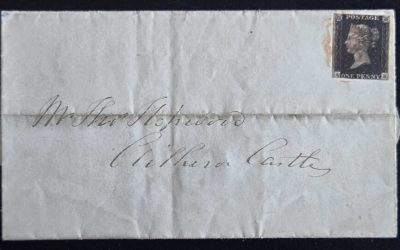 POSTAGE
ONE PENNY
Mr Thos Hopwood
Clithero Castle